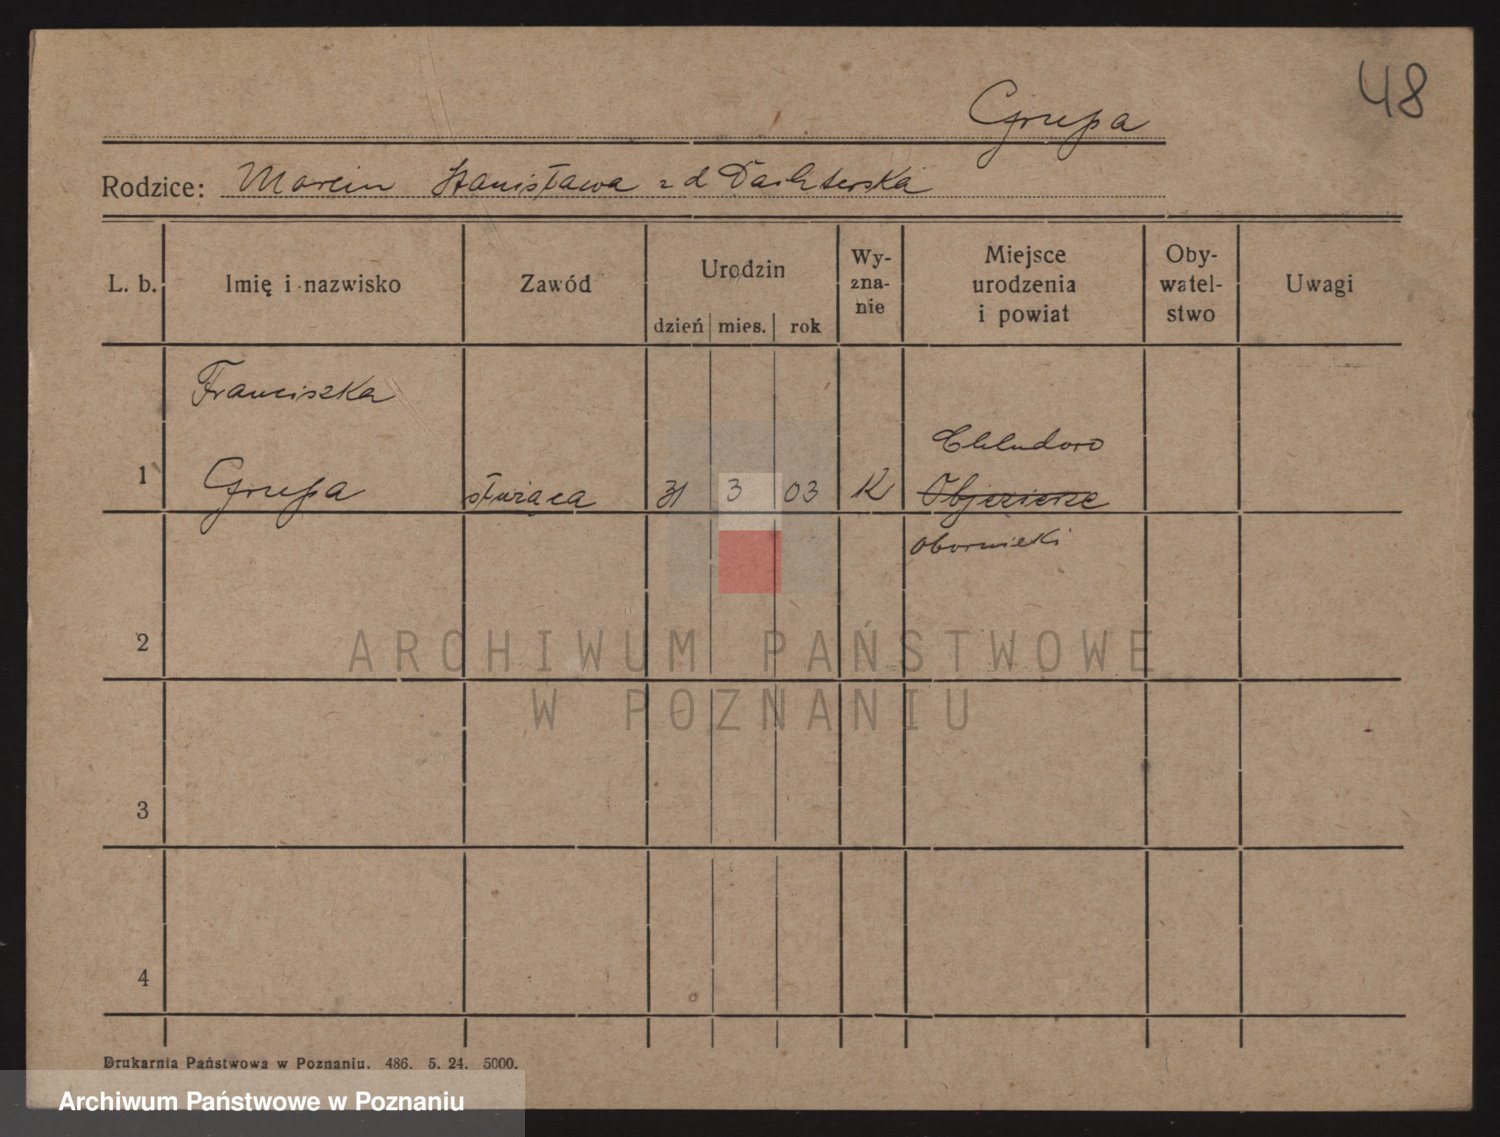 48
Grupa
Rodzice: Marcin Stanisława z d Dachterska
L. b. Imię i nazwisko Zawód Urodzin Wy-zna-nie Miejsce urodzenia i powiat Oby-watel-stwo Uwagi
dzień mies. rok
Franciszka
Chludowo
1 Grupa służąca 31 3 03 K Objezierze
obornicki
2
ARCHIWUM PAŃSTWOWE
W POZNANIU
3
4
Drukarnia Państwowa w Poznaniu. 486. 5. 24. 5000.
Archiwum Państwowe w Poznaniu